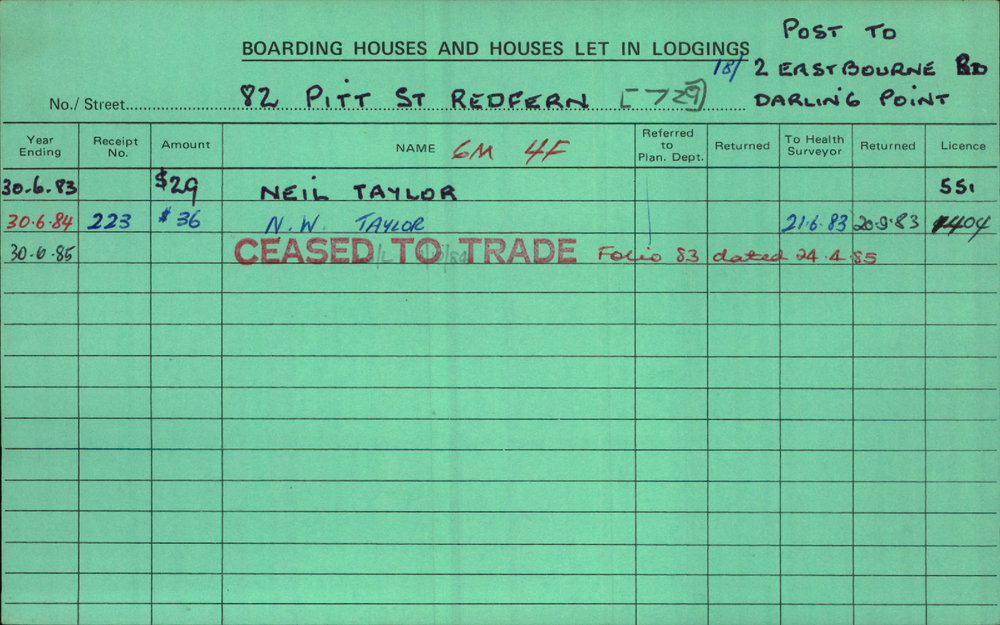 POST TO
BOARDING HOUSES AND HOUSES LET IN LODGINGS
18/ 2 EASTBOURNE RD
No./Street 82 PITT ST REDFERN [729] DARLING POINT
Year Ending Receipt No. Amount NAME 6M 4F Referred to Plan. Dept. Returned To Health Surveyor Returned Licence
30.6.83 $29 NEIL TAYLOR 551
30.6.84 223 $36 N.W. TAYLOR 21.6.83 20.9.83 1404
30.6.85 CEASED TO TRADE Folio 83 dated 24.4.85